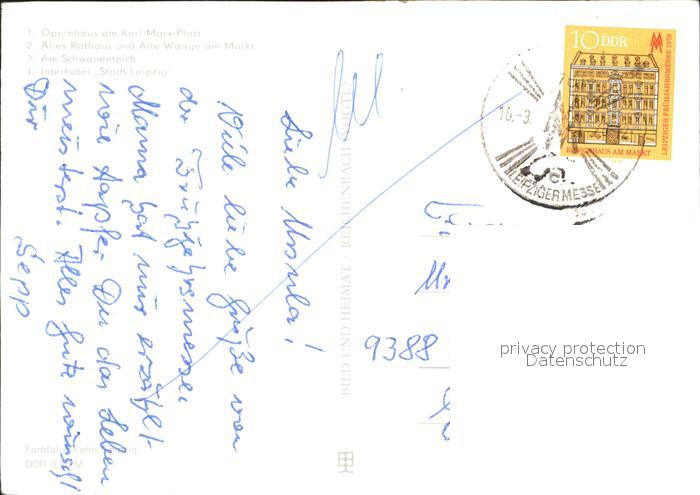 1. Opernhaus am Karl-Marx-Platz
2. Altes Rathaus und Alte Waage am Markt
3. Am Schwanenteich
4. Interhotel „Stadt Leipzig“
Liebe Ursula!
Viele liebe Grüße von
der Frühjahrsmesse.
Mama hat mir erzählt
wie tapfer Du das Leben
meisterst. Alles Gute wünscht
Dir
Sepp
Farbfoto: Kühn, Leipzig
DDR
BILD UND HEIMAT · REICHENBACH (VOGTL)
10 DDR
LEIPZIGER FRÜHJAHRSMESSE 1978
KÖNIGSHAUS AM MARKT
LEIPZIGER MESSE
9388
privacy protection
Datenschutz